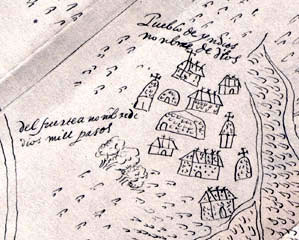 Pueblo de yndios
nonbre de dios
del fuerte a nonbre de
dios mill pasos